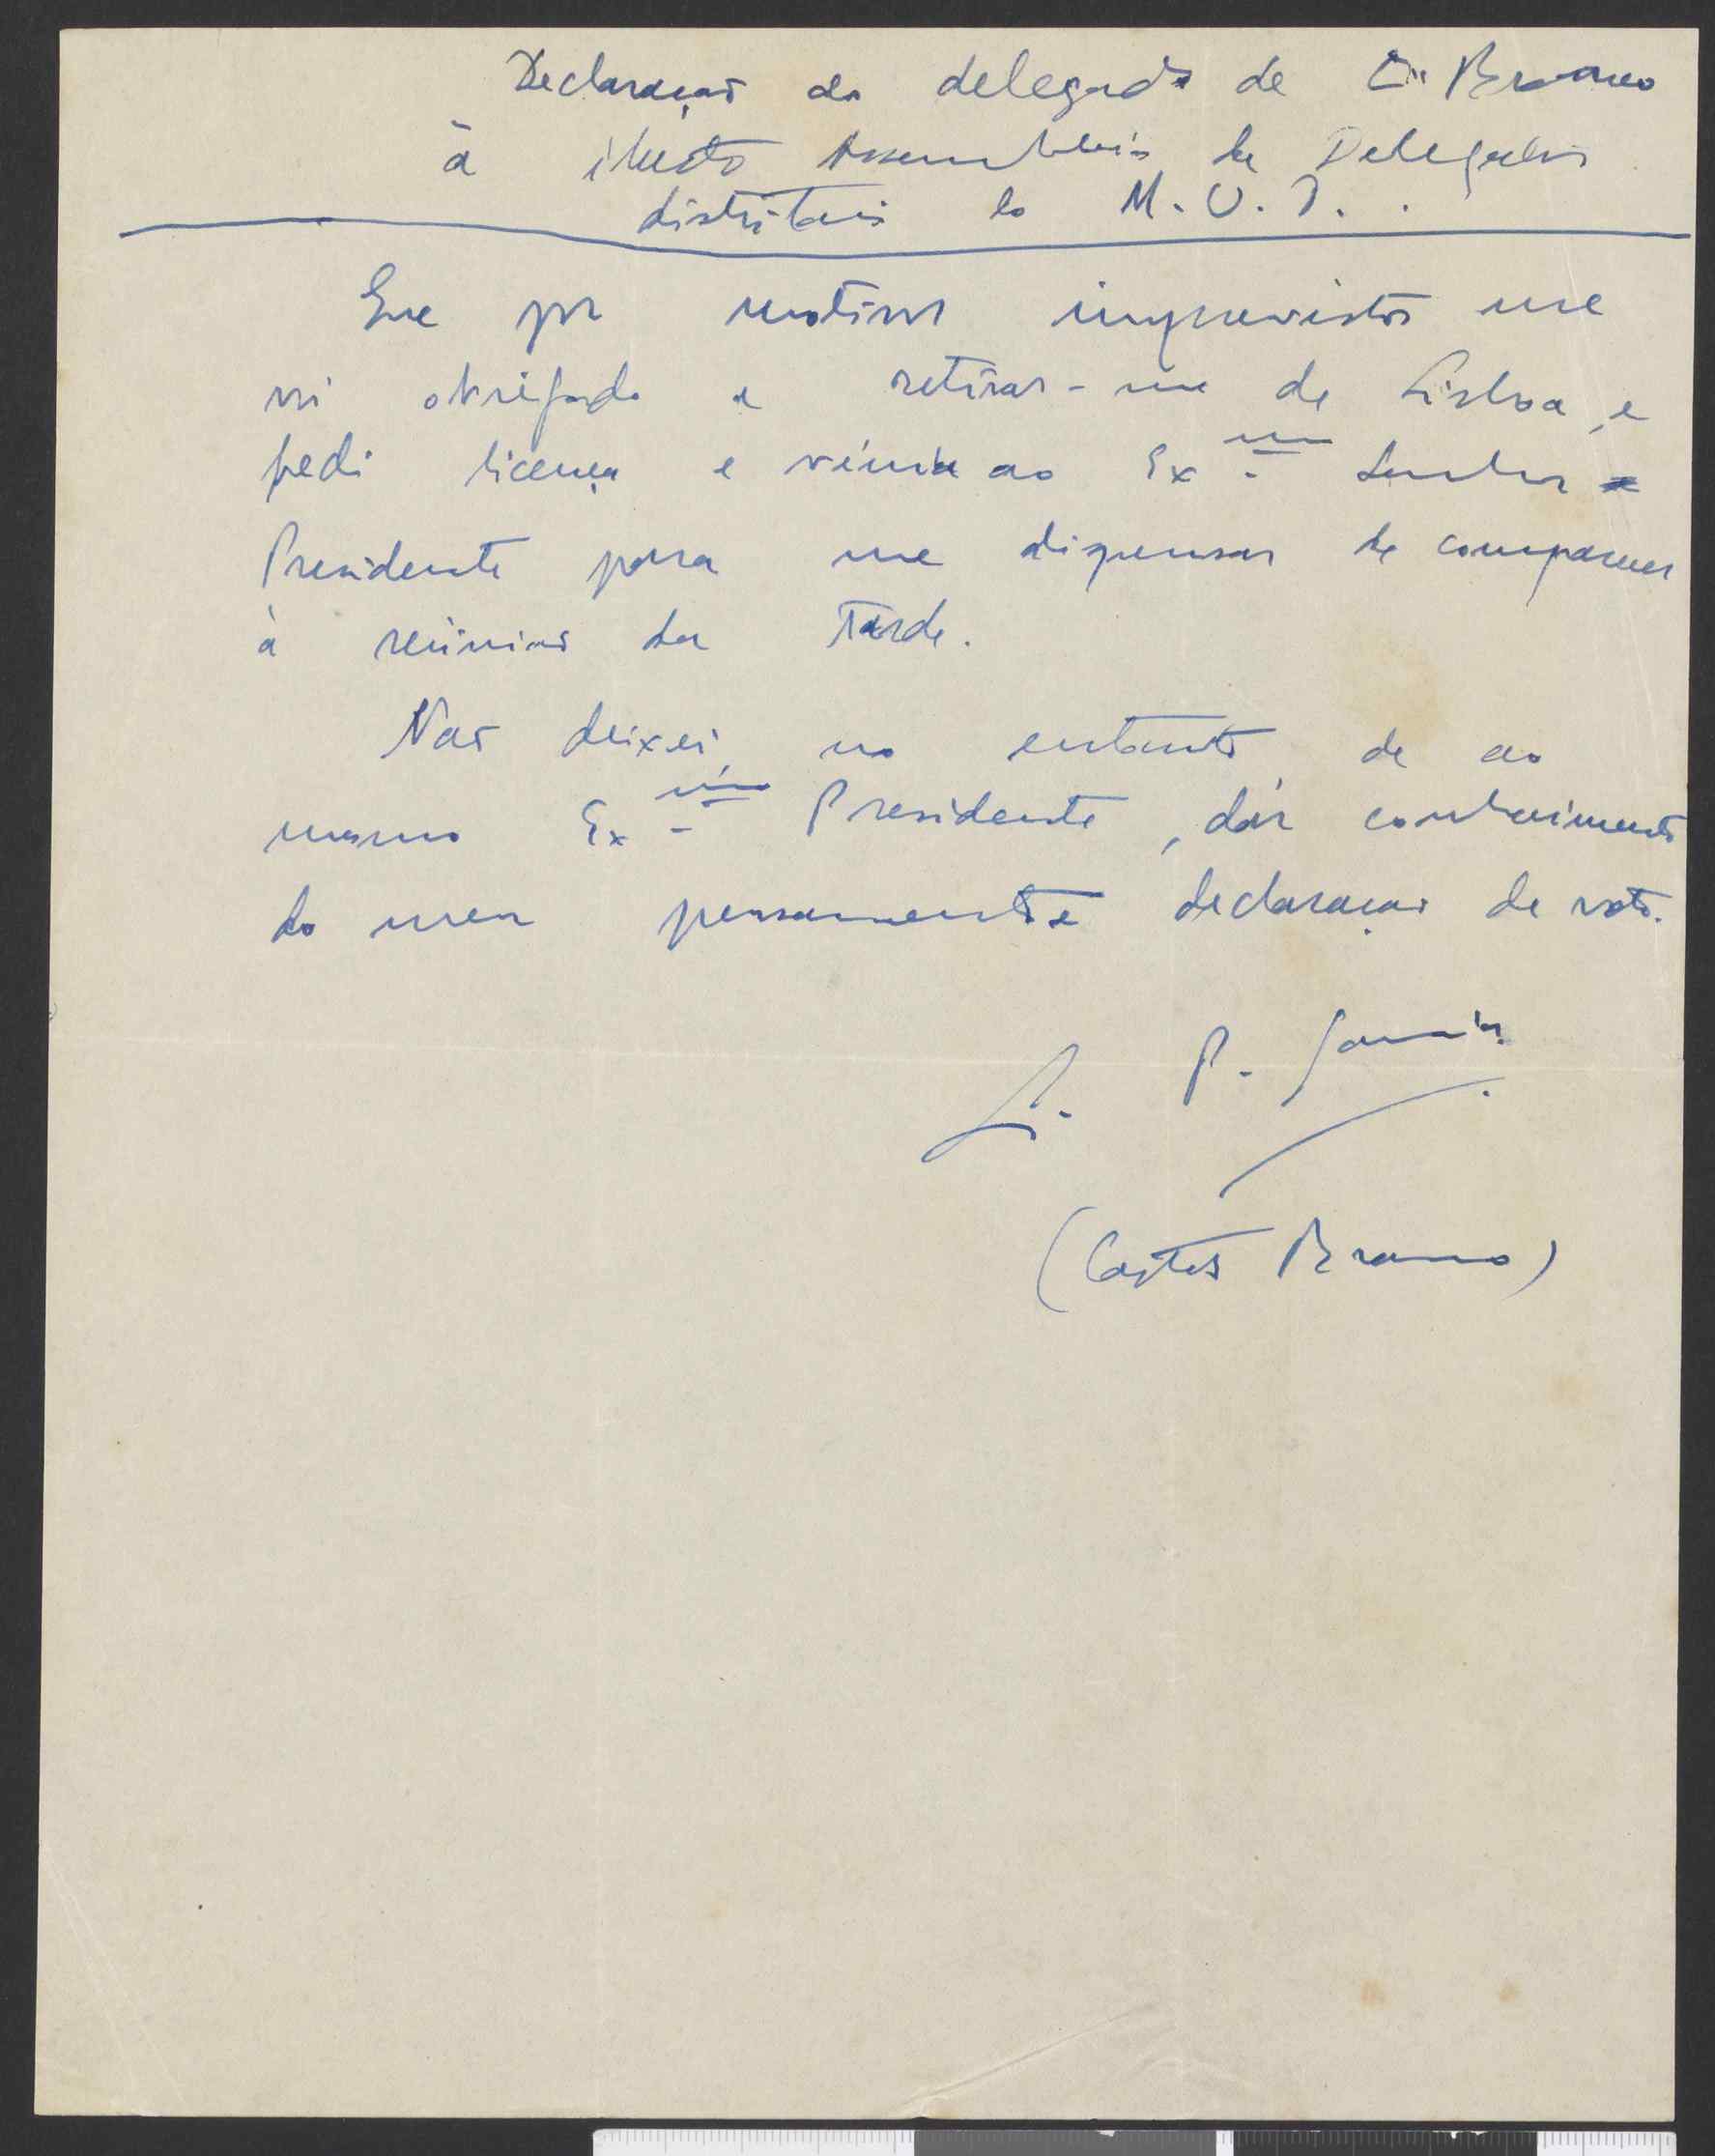 Declaração do delegado de C.º Branco
à ilustre Assembleia de Delegados
distritais do M.U.D..
Que por motivos imprevistos me
vi obrigado a retirar-me de Lisboa, e
pedi licença e vénia ao Exmo Senhor
Presidente para me dispensar de comparecer
à reünião da tarde.
Não deixei, no entanto, de ao
mesmo Exmo Presidente, dár conhecimento
do meu pensamento e declaração de voto.
P.
(Castelo Branco)